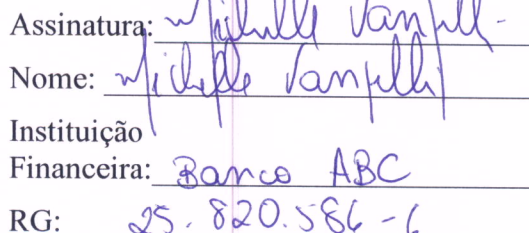 Assinatura: Michelle
Nome: Michelle
Instituição
Financeira: Banco ABC
RG: 25.820.586-6